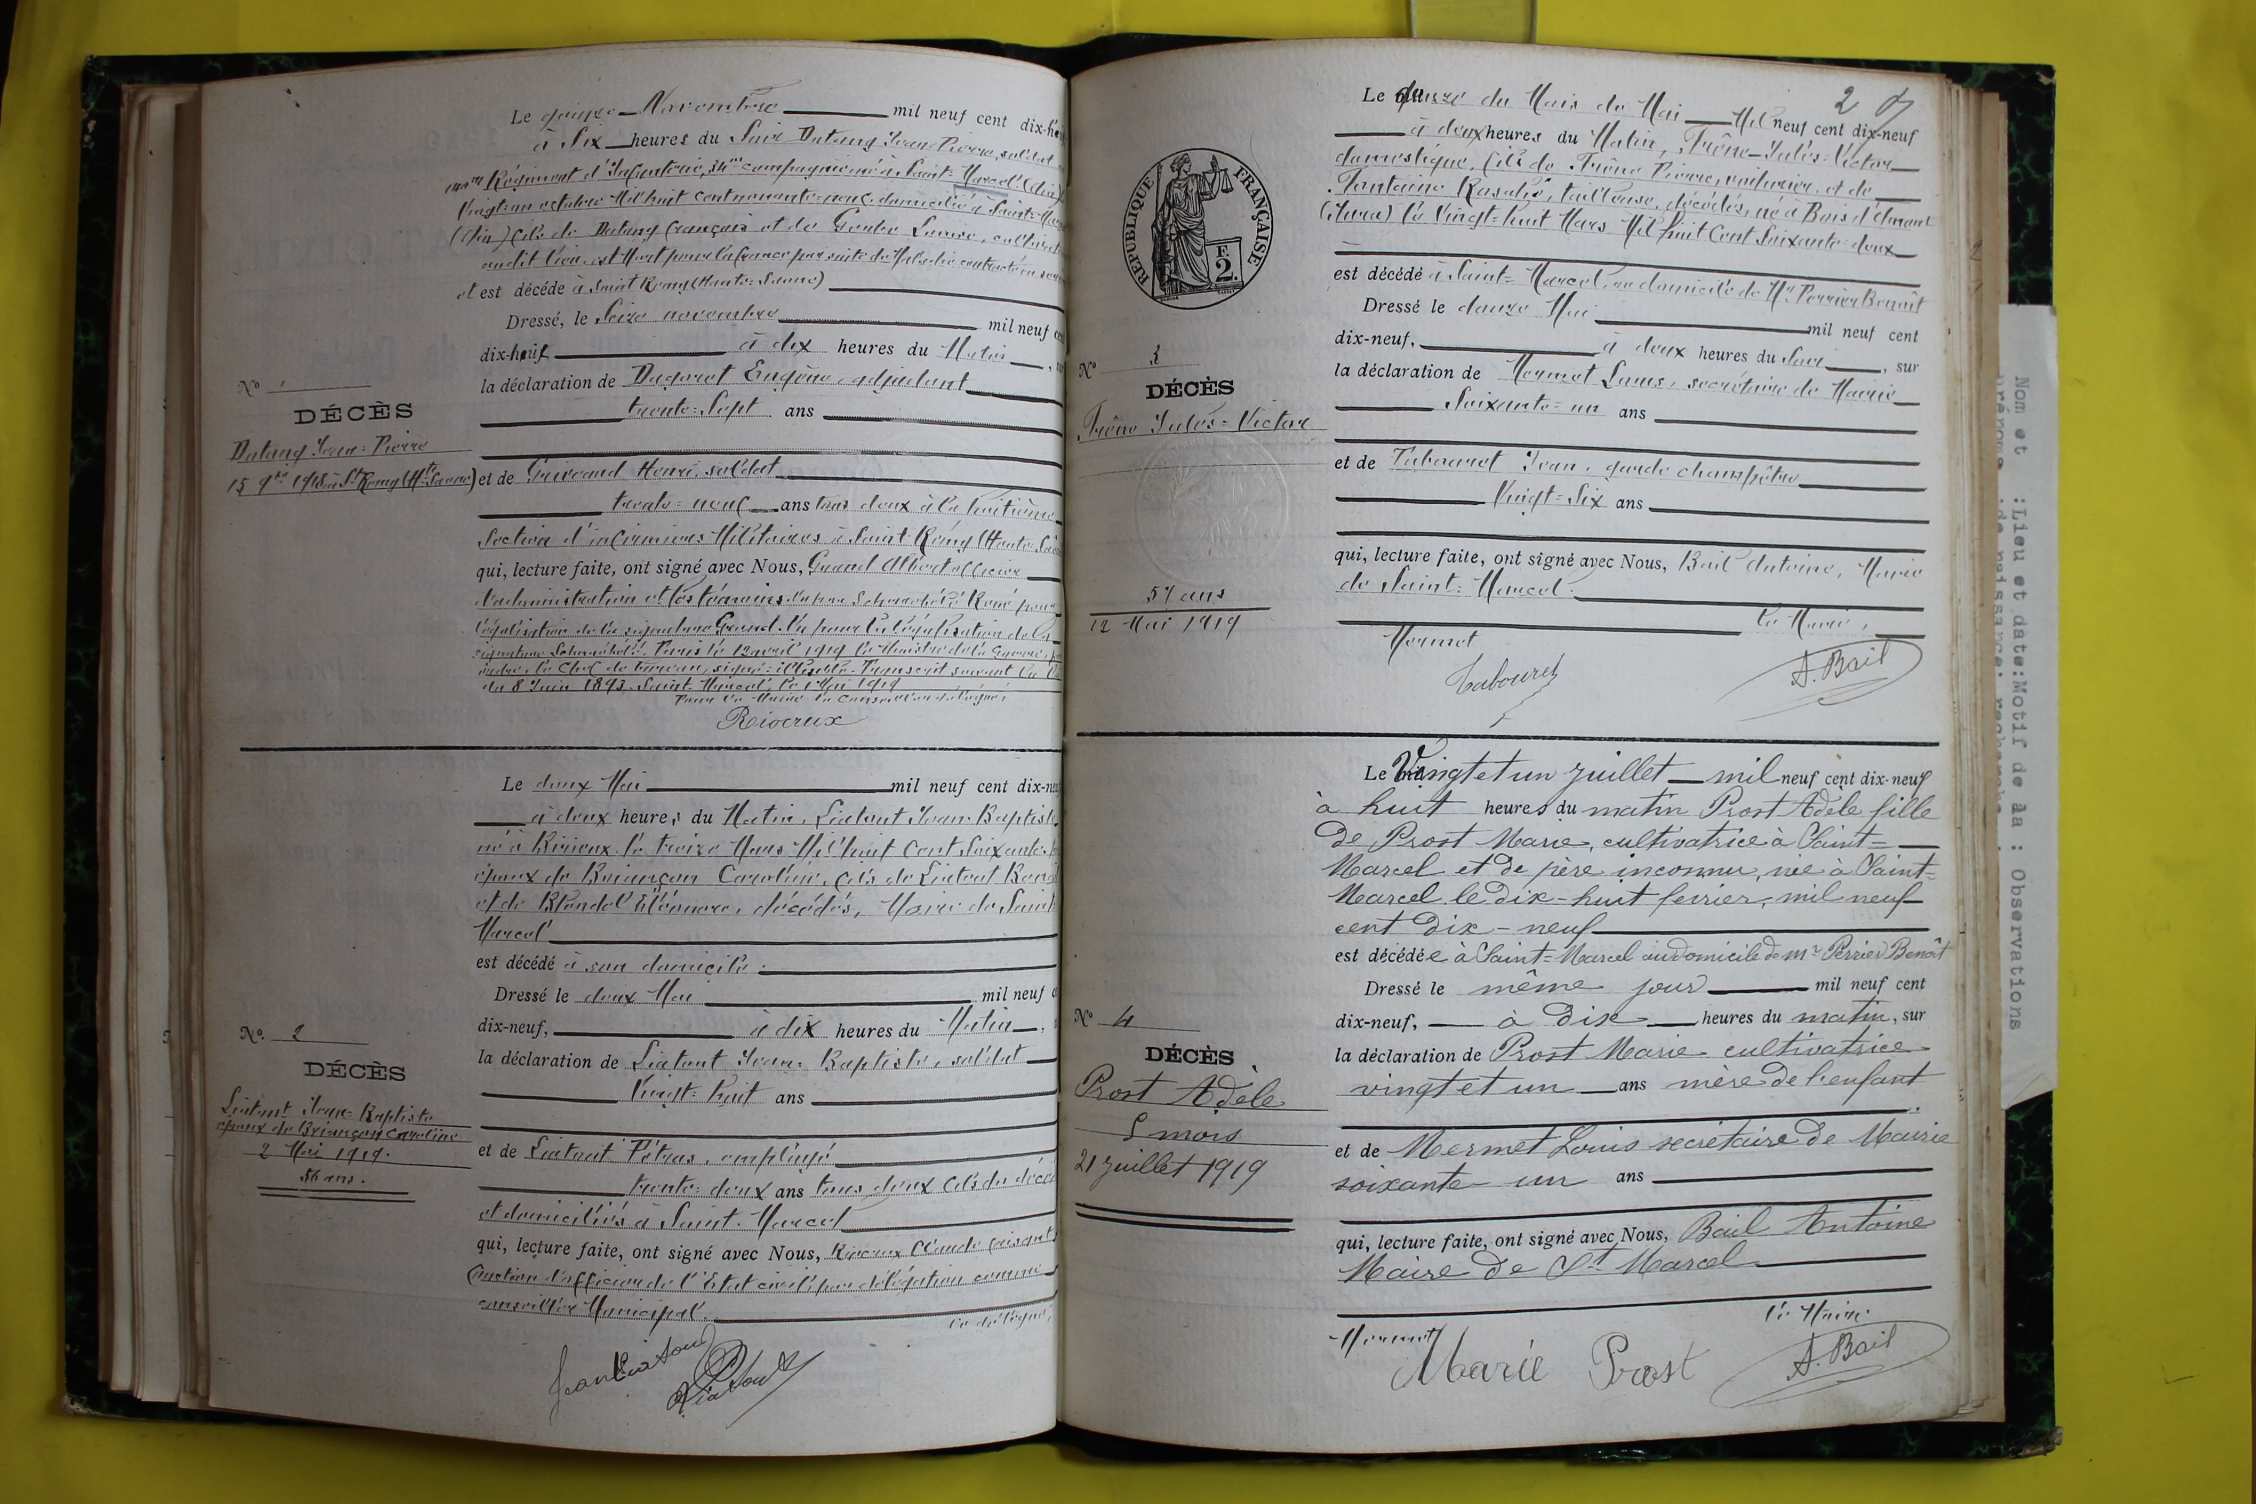 Le quinze Novembre mil neuf cent dix-
à Six heures du Soir Dutang Jean-Pierre, soldat
Régiment d'Infanterie, compagnie né à Saint-Marcel (Ain)
Vingt-un octobre Mil huit cent nonante-neuf, domicilié à Saint-
(Ain) fils de Dutang François et de Louise, cultivateurs
audit lieu, est Mort pour la France par suite de Maladie contractée en
et est décédé à Saint Rémy (Haute-Saône)
Dressé, le Seize novembre mil neuf
dix-huit à dix heures du Matin
la déclaration de Eugène, adjudant
trente-Sept ans
No
DÉCÈS
Dutang Jean-Pierre
15 9bre 1918 à St Rémy (Hte Saône)
et de Henri, soldat
trente-neuf ans tous deux à la huitième
Section d'infirmiers Militaires à Saint-Rémy (Haute-
qui, lecture faite, ont signé avec Nous, Albert officier
d'administration et les témoins. Vu pour
légalisation de la signature Vu pour la légalisation de la
signature Paris le 12 avril 1919 le Ministre de la Guerre,
ordre, le Chef de bureau, signé: Transcrit suivant la
du 8 Juin 1893. Saint-Marcel le Mai 1919
Pour le Maire le Conseiller délégué,
Rioerux
Le deux Mai mil neuf cent dix-
à deux heures du Matin, Liatout Jean-Baptiste
né à Birieux le treize Mars Mil huit Cent Soixante-
époux de Briançon Caroline, fils de Liatout
et de Blondel Éléonore, décédés, Maire de Saint
Marcel
est décédé à son domicile
Dressé le deux Mai mil neuf
dix-neuf, à dix heures du Matin,
No 2
DÉCÈS
Liatout Jean-Baptiste
époux de Briançon Caroline
2 Mai 1919.
56 ans.
la déclaration de Liatout Jean-Baptiste, soldat
Vingt-huit ans
et de Liatout Pétrus, employé
trente-deux ans tous deux fils du
et domiciliés à Saint-Marcel
qui, lecture faite, ont signé avec Nous, Claude faisant
fonction d'officier de l'Etat civil par délégation comme
conseiller Municipal.
le délégué,
Jean Liatout
Liatout
2
Le douze du Mois de Mai Mil neuf cent dix-neuf
à deux heures du Matin, Frêne-Jules-Victor
domestique, fils de Frêne Pierre, voiturier, et de
Fontaine Rosalie, tailleuse, décédés, né à Bois d'Amont
(Jura) le Vingt-huit Mars Mil huit Cent Soixante-deux
RÉPUBLIQUE FRANÇAISE
F.
2.
est décédé à Saint-Marcel, au domicile de Mr Perrier Benoît
Dressé le douze Mai mil neuf cent
dix-neuf, à deux heures du Soir, sur
No 3
DÉCÈS
Frêne Jules-Victor
57 ans
12 Mai 1919
la déclaration de Mermet Louis, secrétaire de Mairie
Soixante-un ans
et de Tabouret Jean, garde champêtre
Vingt-Six ans
qui, lecture faite, ont signé avec Nous, Bail Antoine, Maire
de Saint-Marcel.
le Maire,
Mermet
Tabouret
A. Bail
Le Vingt et un juillet mil neuf cent dix-neuf
à huit heures du matin Prost Adèle fille
de Prost Marie, cultivatrice à Saint=
Marcel et de père inconnu, née à Saint=
Marcel le dix-huit février, mil neuf
cent dix-neuf
est décédée à Saint=Marcel au domicile de Mr Perrier Benoît
Dressé le même jour mil neuf cent
dix-neuf, à dix heures du matin, sur
No 4
DÉCÈS
Prost Adèle
5 mois
21 juillet 1919
la déclaration de Prost Marie cultivatrice
vingt et un ans mère de l'enfant
et de Mermet Louis secrétaire de Mairie
soixante un ans
qui, lecture faite, ont signé avec Nous, Bail Antoine
Maire de St Marcel
le Maire.
Mermet
Marie Prost
A. Bail
Nom et :Lieu et date:Motif de la : Observations